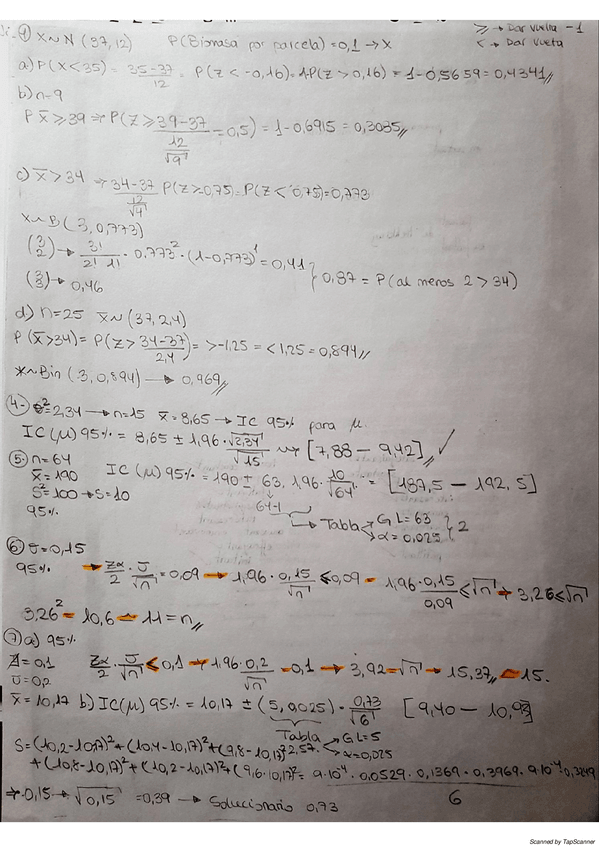 1) X~N (37,12) P(Biomasa por parcela)=0,1 → X
≥ → Dar vuelta -1
< → Dar vuelta
a) P(X<35) = 35-37/12 = P(Z<-0,16)=1-P(Z>0,16) = 1-0,5659=0,4341//
b) n-9
P x̄ ≥39 → P(Z ≥ 39-37/12/√9 = 0,5) = 1-0,6915 = 0,3085//
c) x̄ >34 → 34-37/12/√4 P(Z>-0,75)= P(Z< 0,75)=0,773
X~B(3,0,773)
(3 2) → 3!/2! 1! · 0,773² · (1-0,773)¹ = 0,41
(3 3) → 0,46
} 0,87 = P(al menos 2 > 34)
d) n=25 x̄~ (37, 2,4)
P(x̄>34) = P(Z> 34-37/2,4) = >-1,25 = < 1,25 = 0,894//
X~Bin (3, 0,894) → 0,969//
4- σ²=2,34 → n=15 x̄ = 8,65 → IC 95% para μ.
IC(μ) 95% = 8,65 ± 1,96 · √2,34/√15 → [7,88 - 9,42]// ✓
5. n=64
x̄=190
S²=100 → S=10
95%
IC(μ) 95% = 190 ± 63, 1,96 · 10/√64 = [187,5 - 192,5]
64-1
→ Tabla
GL=63
α=0,025
} 2
6 σ=0,15
95% → Zα/2 · σ/√n = 0,09 → 1,96 · 0,15/√n ≤ 0,09 - 1,96·0,15/0,09 ≤ √n → 3,26 ≤ √n
3,26² - 10,6 - 11 = n//
7. a) 95%
A=0,1
σ=0,2
Zα/2 · σ/√n ≤ 0,1 → 1,96 · 0,2/√n - 0,1 → 3,92 - √n → 15,37// - 15.
x̄=10,17 b) IC(μ) 95% = 10,17 ± (5, 0,025) · 0,73/√6 [9,40 - 10,93]
Tabla
2,57
GL=5
α=0,025
S=(10,2-10,17)²+(10,4-10,17)²+(9,8-10,17)²
+(10,8-10,17)²+(10,2-10,17)²+(9,6-10,17)² = 9·10⁻⁴ · 0,0529 · 0,1369 · 0,3969 · 9·10⁻⁴ · 0,3249
6
→ 0,15 → √0,15 = 0,39 → Solucionario 0,73
Scanned by TapScanner